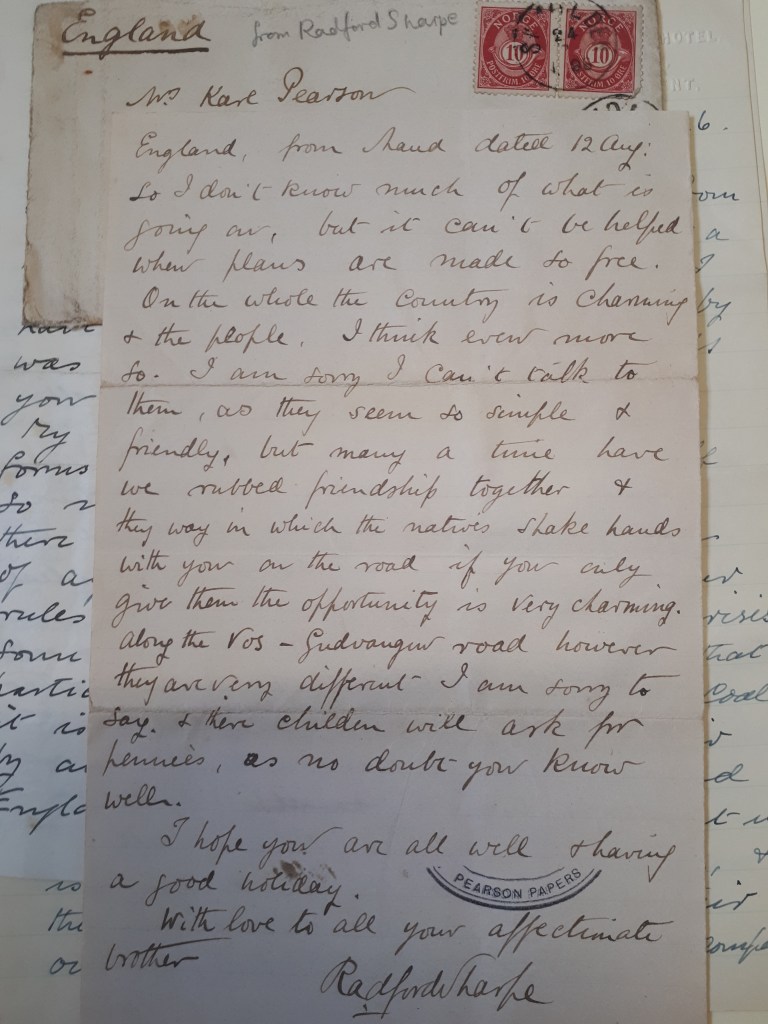 England
from Radford Sharpe
NORGE
NORGE
10
10
POSTFRIM 10 ØRE
POSTFRIM 10 ØRE
HOTEL.
NT.
Mrs Karl Pearson
6.
England, from Maud dated 12 Aug:
So I don't know much of what is
going on, but it can't be helped
when plans are made so free.
On the whole the country is charming
& the people, I think even more
so. I am sorry I can't talk to
them, as they seem so simple &
friendly, but many a time have
we rubbed friendship together &
they way in which the natives shake hands
with you on the road if you only
give them the opportunity is very charming.
Along the Vos – Gudvangen road however
they are very different I am sorry to
say. & there children will ask for
pennies, as no doubt you know
well.
I hope you are all well & having
a good holiday.
PEARSON PAPERS
With love to all your affectionate
brother
Radford Sharpe
a
I
by
was
you
My
forms
so
there
of a
rules
some
it is
by
is
that
coal
d
&